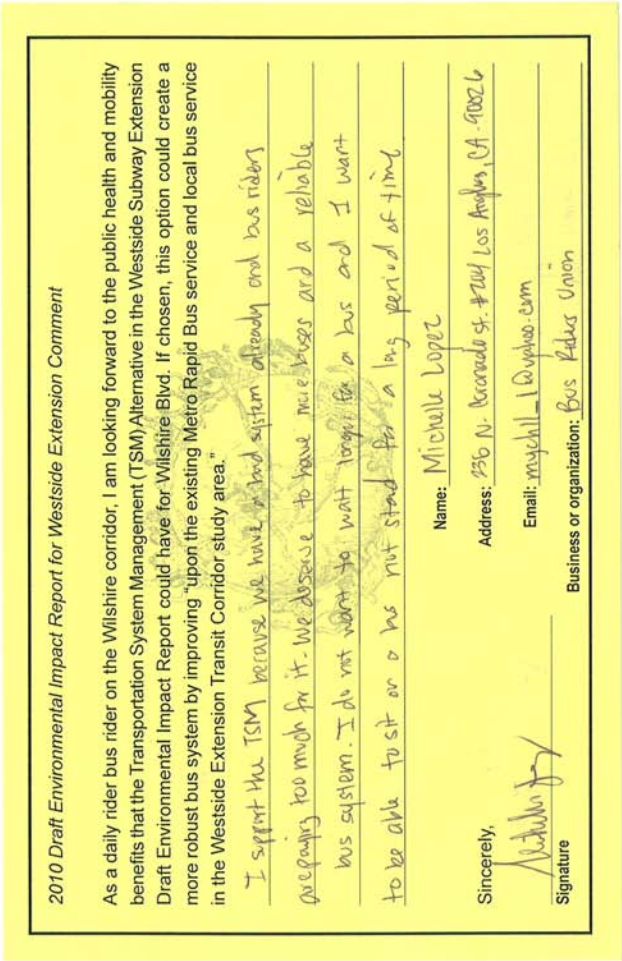 2010 Draft Environmental Impact Report for Westside Extension Comment
As a daily rider bus rider on the Wilshire corridor, I am looking forward to the public health and mobility
benefits that the Transportation System Management (TSM) Alternative in the Westside Subway Extension
Draft Environmental Impact Report could have for Wilshire Blvd. If chosen, this option could create a
more robust bus system by improving "upon the existing Metro Rapid Bus service and local bus service
in the Westside Extension Transit Corridor study area."
I support the TSM because we have a bad system already and bus riders
are paying too much for it. We deserve to have more buses and a reliable
bus system. I do not want to wait longer for a bus and I want
to be able to sit on a bus not stand for a long period of time
Name: Michelle Lopez
Address: 236 N. Coronado st. #204 Los Angeles, CA - 90026
Email: mychll_1@yahoo.com
Business or organization: Bus Riders Union
Sincerely,
Signature